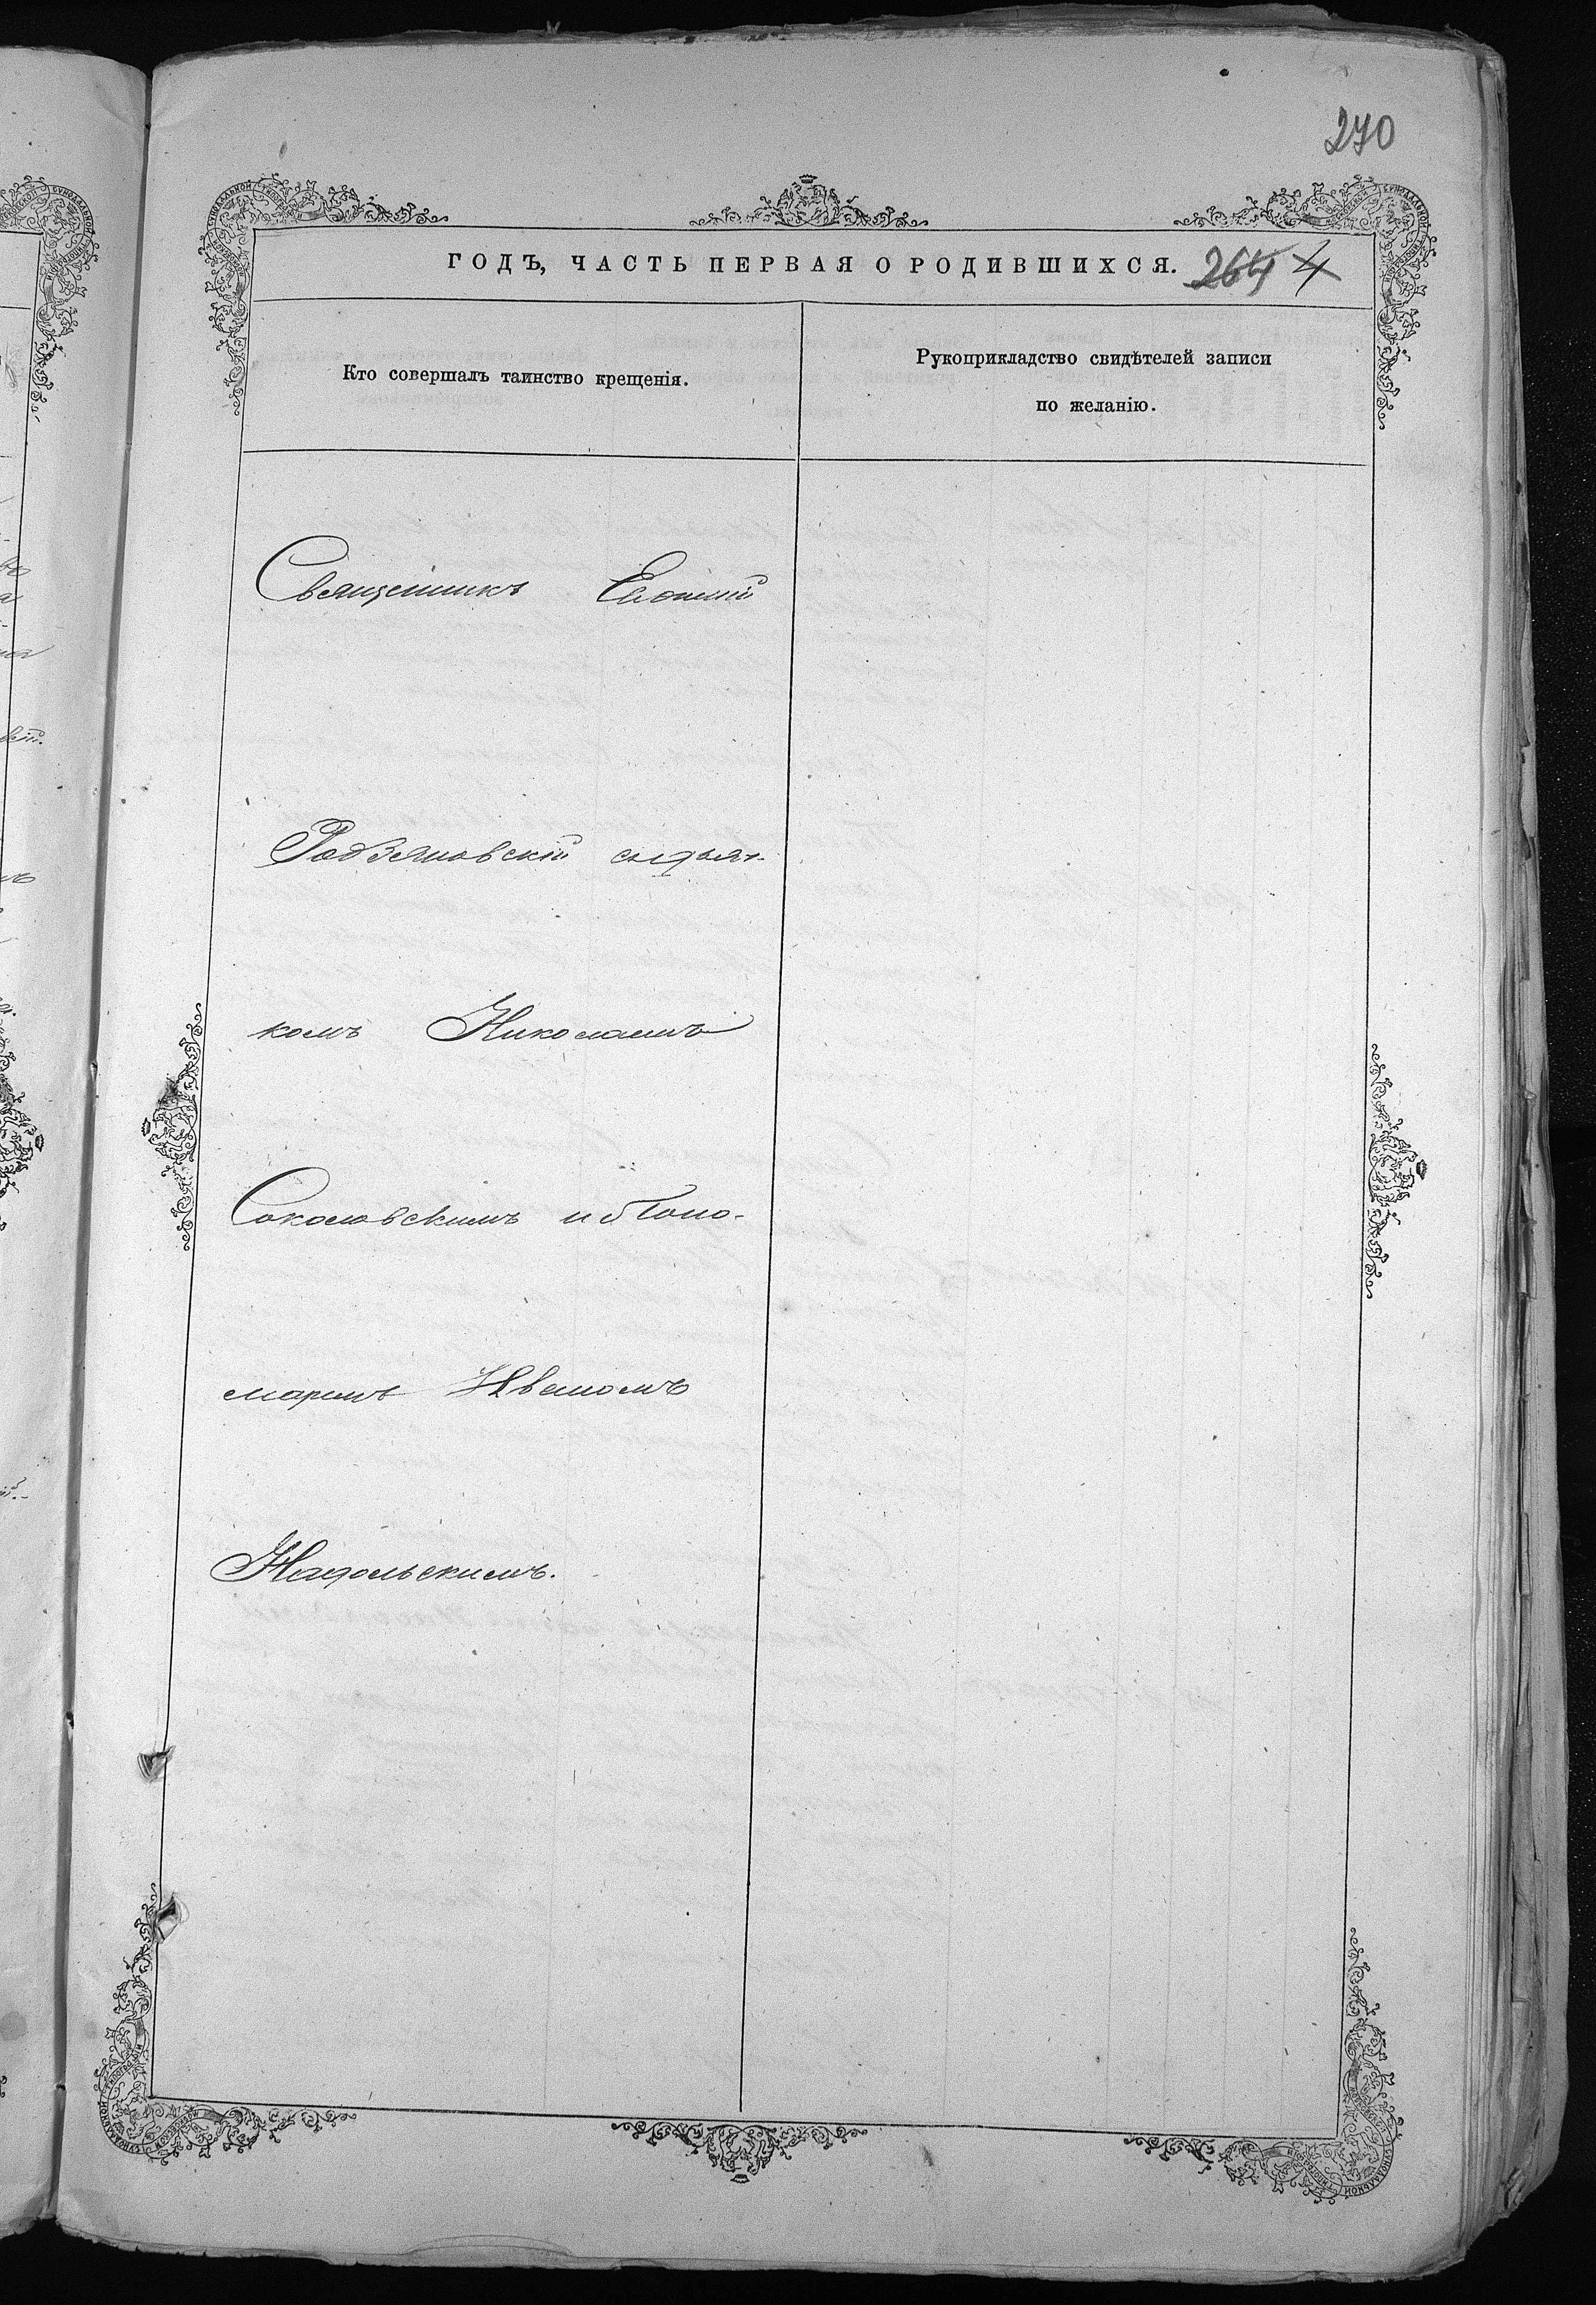 270
ГОДЪ, ЧАСТЬ ПЕРВАЯ О РОДИВШИХСЯ. 264 4
Кто совершалъ таинство крещенія.
Рукоприкладство свидѣтелей записи
по желанію.
Священникъ Евфимій
Родзяновскій съ дьяч-
комъ Николаемъ
Соколовскимъ и с Поно-
маремъ Иваномъ
Надольскимъ.